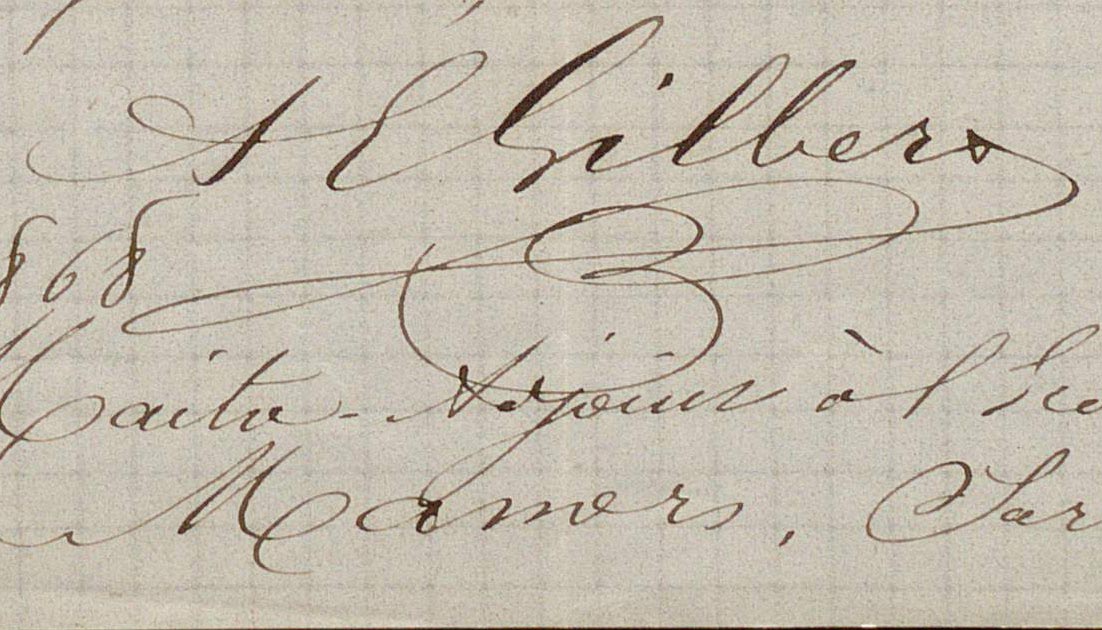 A E Gilbert
868
Maître-Adjoint à l'Éco
Mamers, Sar